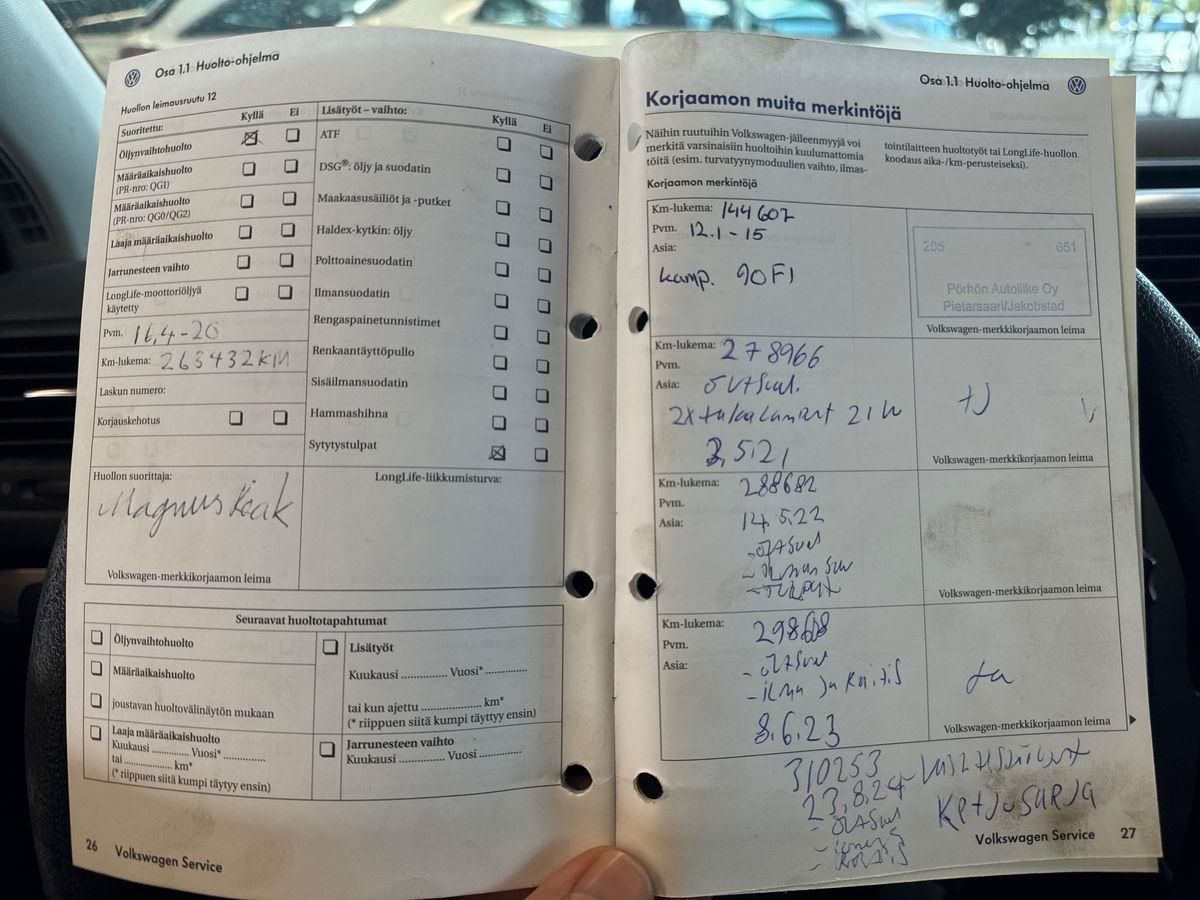 Osa 1.1 Huolto-ohjelma
Huollon leimausruutu 12
Suoritettu: Kyllä Ei
Öljynvaihtohuolto
Määräaikaishuolto
(PR-nro: QG1)
Määräaikaishuolto
(PR-nro: QG0/QG2)
Laaja määräaikaishuolto
Jarrunesteen vaihto
LongLife-moottoriöljyä
käytetty
Pvm. 16,4-20
Km-lukema: 263432KM
Laskun numero:
Korjauskehotus
Lisätyöt – vaihto: Kyllä Ei
ATF
DSG®: öljy ja suodatin
Maakaasusäiliöt ja -putket
Haldex-kytkin: öljy
Polttoainesuodatin
Ilmansuodatin
Rengaspainetunnistimet
Renkaantäyttöpullo
Sisäilmansuodatin
Hammashihna
Sytytystulpat
Huollon suorittaja:
Magnus
Volkswagen-merkkikorjaamon leima
LongLife-liikkumisturva:
Seuraavat huoltotapahtumat
Öljynvaihtohuolto
Määräaikaishuolto
joustavan huoltovälinäytön mukaan
Laaja määräaikaishuolto
Kuukausi .............. Vuosi* ..............
tai ..................... km*
(* riippuen siitä kumpi täyttyy ensin)
Lisätyöt
Kuukausi .............. Vuosi* ..............
tai kun ajettu .................... km*
(* riippuen siitä kumpi täyttyy ensin)
Jarrunesteen vaihto
Kuukausi .............. Vuosi ..............
26 Volkswagen Service
Osa 1.1 Huolto-ohjelma
Korjaamon muita merkintöjä
Näihin ruutuihin Volkswagen-jälleenmyyjä voi
merkitä varsinaisiin huoltoihin kuulumattomia
töitä (esim. turvatyynymoduulien vaihto, ilmas-
tointilaitteen huoltotyöt tai LongLife-huollon
koodaus aika-/km-perusteiseksi).
Korjaamon merkintöjä
Km-lukema: 144607
Pvm. 12.1-15
Asia:
kamp. 90F1
205 651
Pörhön Autoliike Oy
Pietarsaari/Jakobstad
Volkswagen-merkkikorjaamon leima
Km-lukema: 278966
Pvm.
Asia:
3,5.21
Volkswagen-merkkikorjaamon leima
Km-lukema: 288682
Pvm.
Asia: 14.5.22
Volkswagen-merkkikorjaamon leima
Km-lukema:
Pvm.
Asia:
8.6.23
Volkswagen-merkkikorjaamon leima
310253
23,8.24
Volkswagen Service 27